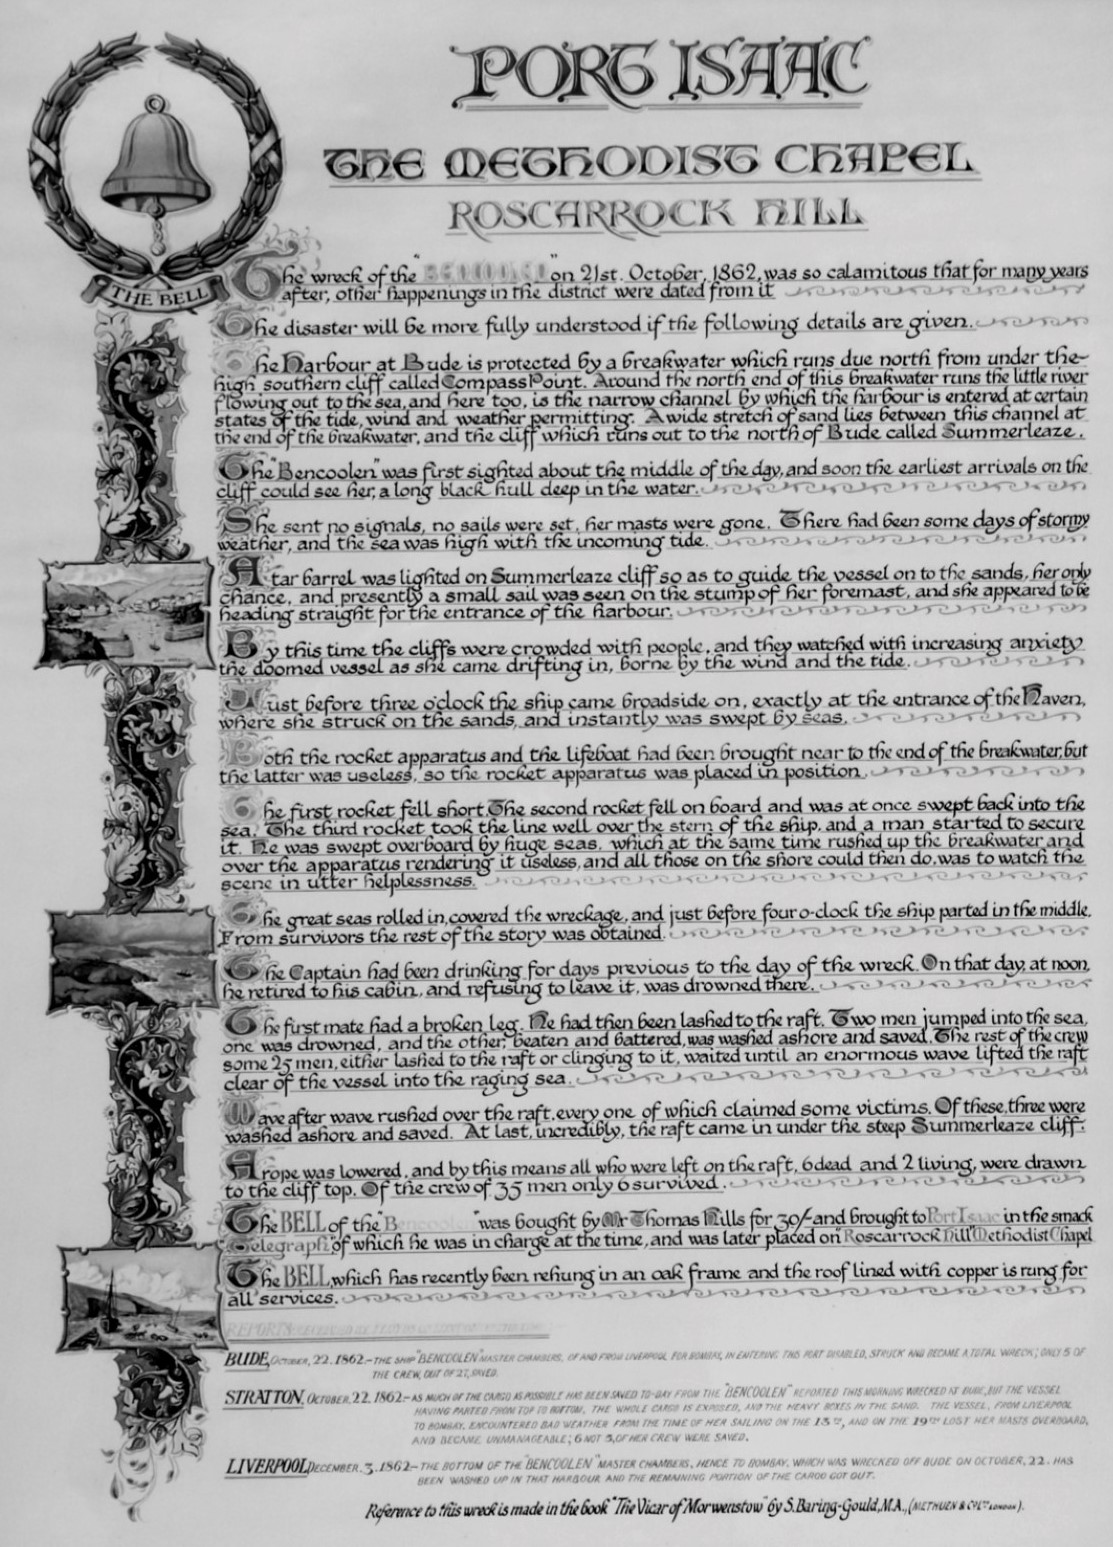 PORT ISAAC
THE METHODIST CHAPEL
ROSCARROCK HILL
THE BELL
The wreck of the "BENCOOLEN" on 21st. October, 1862, was so calamitous that for many years
after, other happenings in the district were dated from it
The disaster will be more fully understood if the following details are given.
The Harbour at Bude is protected by a breakwater which runs due north from under the
high southern cliff called Compass Point. Around the north end of this breakwater runs the little river
flowing out to the sea, and here too, is the narrow channel by which the harbour is entered at certain
states of the tide, wind and weather permitting. A wide stretch of sand lies between this channel at
the end of the breakwater, and the cliff which runs out to the north of Bude called Summerleaze.
The "Bencoolen" was first sighted about the middle of the day, and soon the earliest arrivals on the
cliff could see her, a long black hull deep in the water.
She sent no signals, no sails were set, her masts were gone. There had been some days of stormy
weather, and the sea was high with the incoming tide.
A tar barrel was lighted on Summerleaze cliff so as to guide the vessel on to the sands, her only
chance, and presently a small sail was seen on the stump of her foremast, and she appeared to be
heading straight for the entrance of the harbour.
By this time the cliffs were crowded with people, and they watched with increasing anxiety
the doomed vessel as she came drifting in, borne by the wind and the tide.
Just before three o'clock the ship came broadside on, exactly at the entrance of the Haven,
where she struck on the sands, and instantly was swept by seas.
Both the rocket apparatus and the lifeboat had been brought near to the end of the breakwater, but
the latter was useless, so the rocket apparatus was placed in position.
The first rocket fell short. The second rocket fell on board and was at once swept back into the
sea. The third rocket took the line well over the stern of the ship, and a man started to secure
it. He was swept overboard by huge seas, which at the same time rushed up the breakwater and
over the apparatus rendering it useless, and all those on the shore could then do, was to watch the
scene in utter helplessness.
The great seas rolled in, covered the wreckage, and just before four o-clock the ship parted in the middle.
From survivors the rest of the story was obtained.
The Captain had been drinking for days previous to the day of the wreck. On that day, at noon,
he retired to his cabin, and refusing to leave it, was drowned there.
The first mate had a broken leg. He had then been lashed to the raft. Two men jumped into the sea,
one was drowned, and the other, beaten and battered, was washed ashore and saved. The rest of the crew
some 25 men, either lashed to the raft or clinging to it, waited until an enormous wave lifted the raft
clear of the vessel into the raging sea.
Wave after wave rushed over the raft, every one of which claimed some victims. Of these, three were
washed ashore and saved. At last, incredibly, the raft came in under the steep Summerleaze cliff.
A rope was lowered, and by this means all who were left on the raft, 6 dead and 2 living, were drawn
to the cliff top. Of the crew of 35 men only 6 survived.
The BELL of the "Bencoolen" was bought by Mr Thomas Hills for 30/- and brought to Port Isaac in the smack
"Telegraph", of which he was in charge at the time, and was later placed on "Roscarrock Hill" Methodist Chapel
The BELL, which has recently been rehung in an oak frame and the roof lined with copper is rung for
all services.
REPORTS
BUDE, OCTOBER, 22. 1862.- THE SHIP "BENCOOLEN" MASTER CHAMBERS, OF AND FROM LIVERPOOL FOR BOMBAY, IN ENTERING THIS PORT DISABLED, STRUCK AND BECAME A TOTAL WRECK; ONLY 5 OF
THE CREW, OUT OF 27, SAVED.
STRATTON, OCTOBER. 22. 1862.- AS MUCH OF THE CARGO AS POSSIBLE HAS BEEN SAVED TO-DAY FROM THE "BENCOOLEN" REPORTED THIS MORNING WRECKED AT BUDE, BUT THE VESSEL
HAVING PARTED FROM TOP TO BOTTOM, THE WHOLE CARGO IS EXPOSED, AND THE HEAVY BOXES IN THE SAND. THE VESSEL, FROM LIVERPOOL
TO BOMBAY, ENCOUNTERED BAD WEATHER FROM THE TIME OF HER SAILING ON THE 13TH, AND ON THE 19TH LOST HER MASTS OVERBOARD,
AND BECAME UNMANAGEABLE; 6 NOT 5, OF HER CREW WERE SAVED.
LIVERPOOL, DECEMBER. 3. 1862- THE BOTTOM OF THE "BENCOOLEN" MASTER CHAMBERS, HENCE TO BOMBAY, WHICH WAS WRECKED OFF BUDE ON OCTOBER, 22. HAS
BEEN WASHED UP IN THAT HARBOUR AND THE REMAINING PORTION OF THE CARGO GOT OUT.
Reference to this wreck is made in the book "The Vicar of Morwenstow" by S. Baring-Gould, M.A., (METHUEN & CO LTD LONDON).